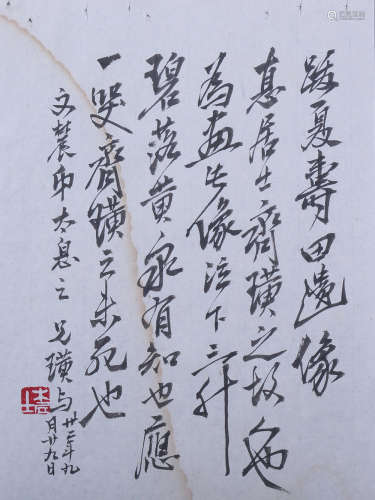 跋夏壽田遺像
息居士齊璜之故人也
為畫此像泣下三升
碧落黃泉有知也應
一哭齊璜之未死也
文農弟太息之 兄璜与
廿二年九
月廿九日